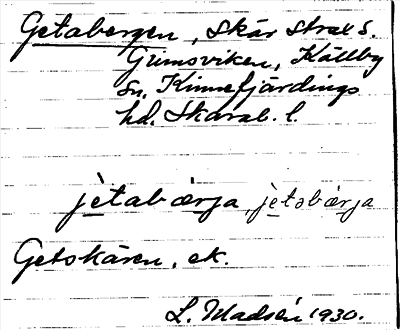 Getabergen, skär strax S.
Grimsviken, Källby
sn, Kinnefjärdings
hd. Skarab. l.
jètabærja, jètsbærja
Getskären, ek.
L. Madsén 1930.